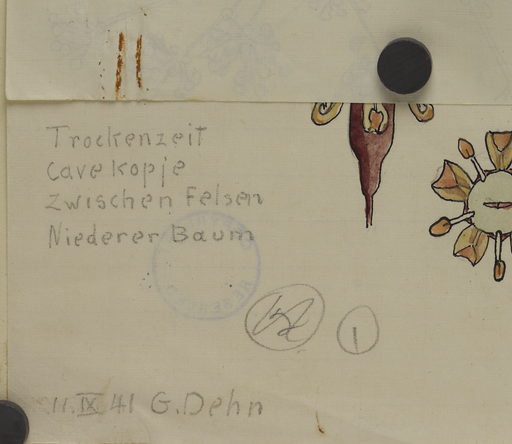 Trockenzeit
Cave kopje
zwischen Felsen
Niederer Baum
1
11.IX 41 G.Dehn